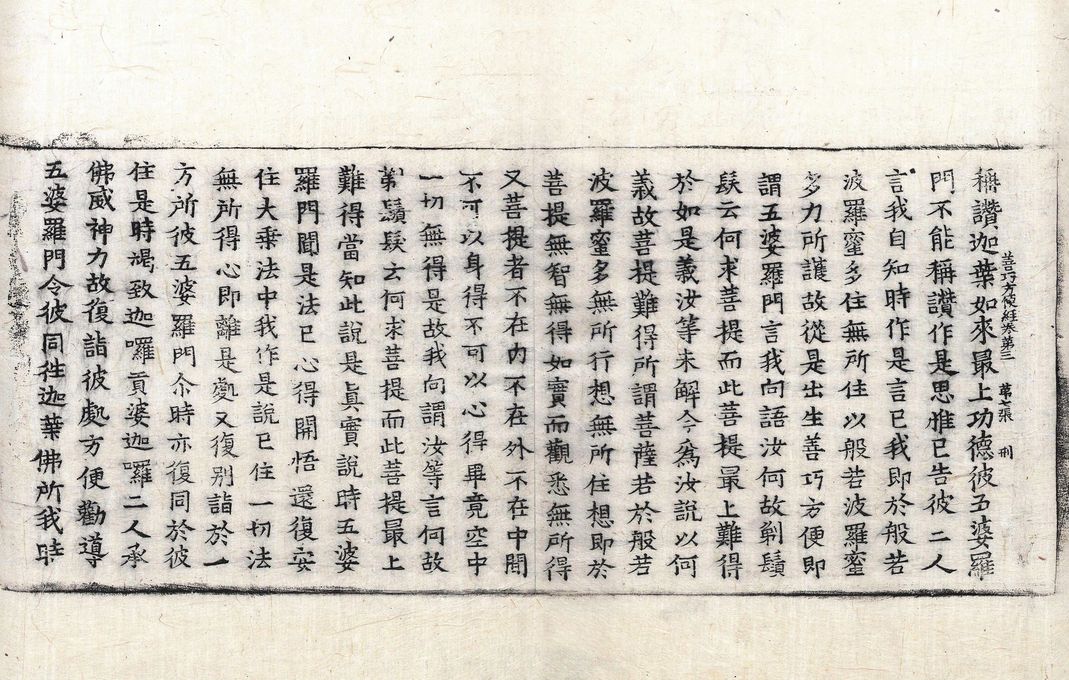 善巧方便經卷第三　第七張　刑
稱讚迦葉如來最上功德彼五婆羅
門不能稱讚作是思惟已告彼二人
言我自知時作是言已我即於般若
波羅蜜多住無所住以般若波羅蜜
多力所護故從是出生善巧方便即
謂五婆羅門言我向語汝何故剃鬚
髮云何求菩提而此菩提最上難得
於如是義汝等未解今為汝說以何
義故菩提難得所謂菩薩若於般若
波羅蜜多無所行想無所住想即於
菩提無智無得如實而觀悉無所得
又菩提者不在内不在外不在中間
不可以身得不可以心得畢竟空中
一切無得是故我向謂汝等言何故
剃鬚髮云何求菩提而此菩提最上
難得當知此說是真實說時五婆
羅門聞是法已心得開悟還復安
住大乗法中我作是說已住一切法
無所得心即離是處又復別詣於一
方所彼五婆羅門尒時亦復同於彼
住是時竭致迦囉賀婆迦囉二人承
佛威神力故復詣彼處方便勸導
五婆羅門令彼同往迦葉佛所我時